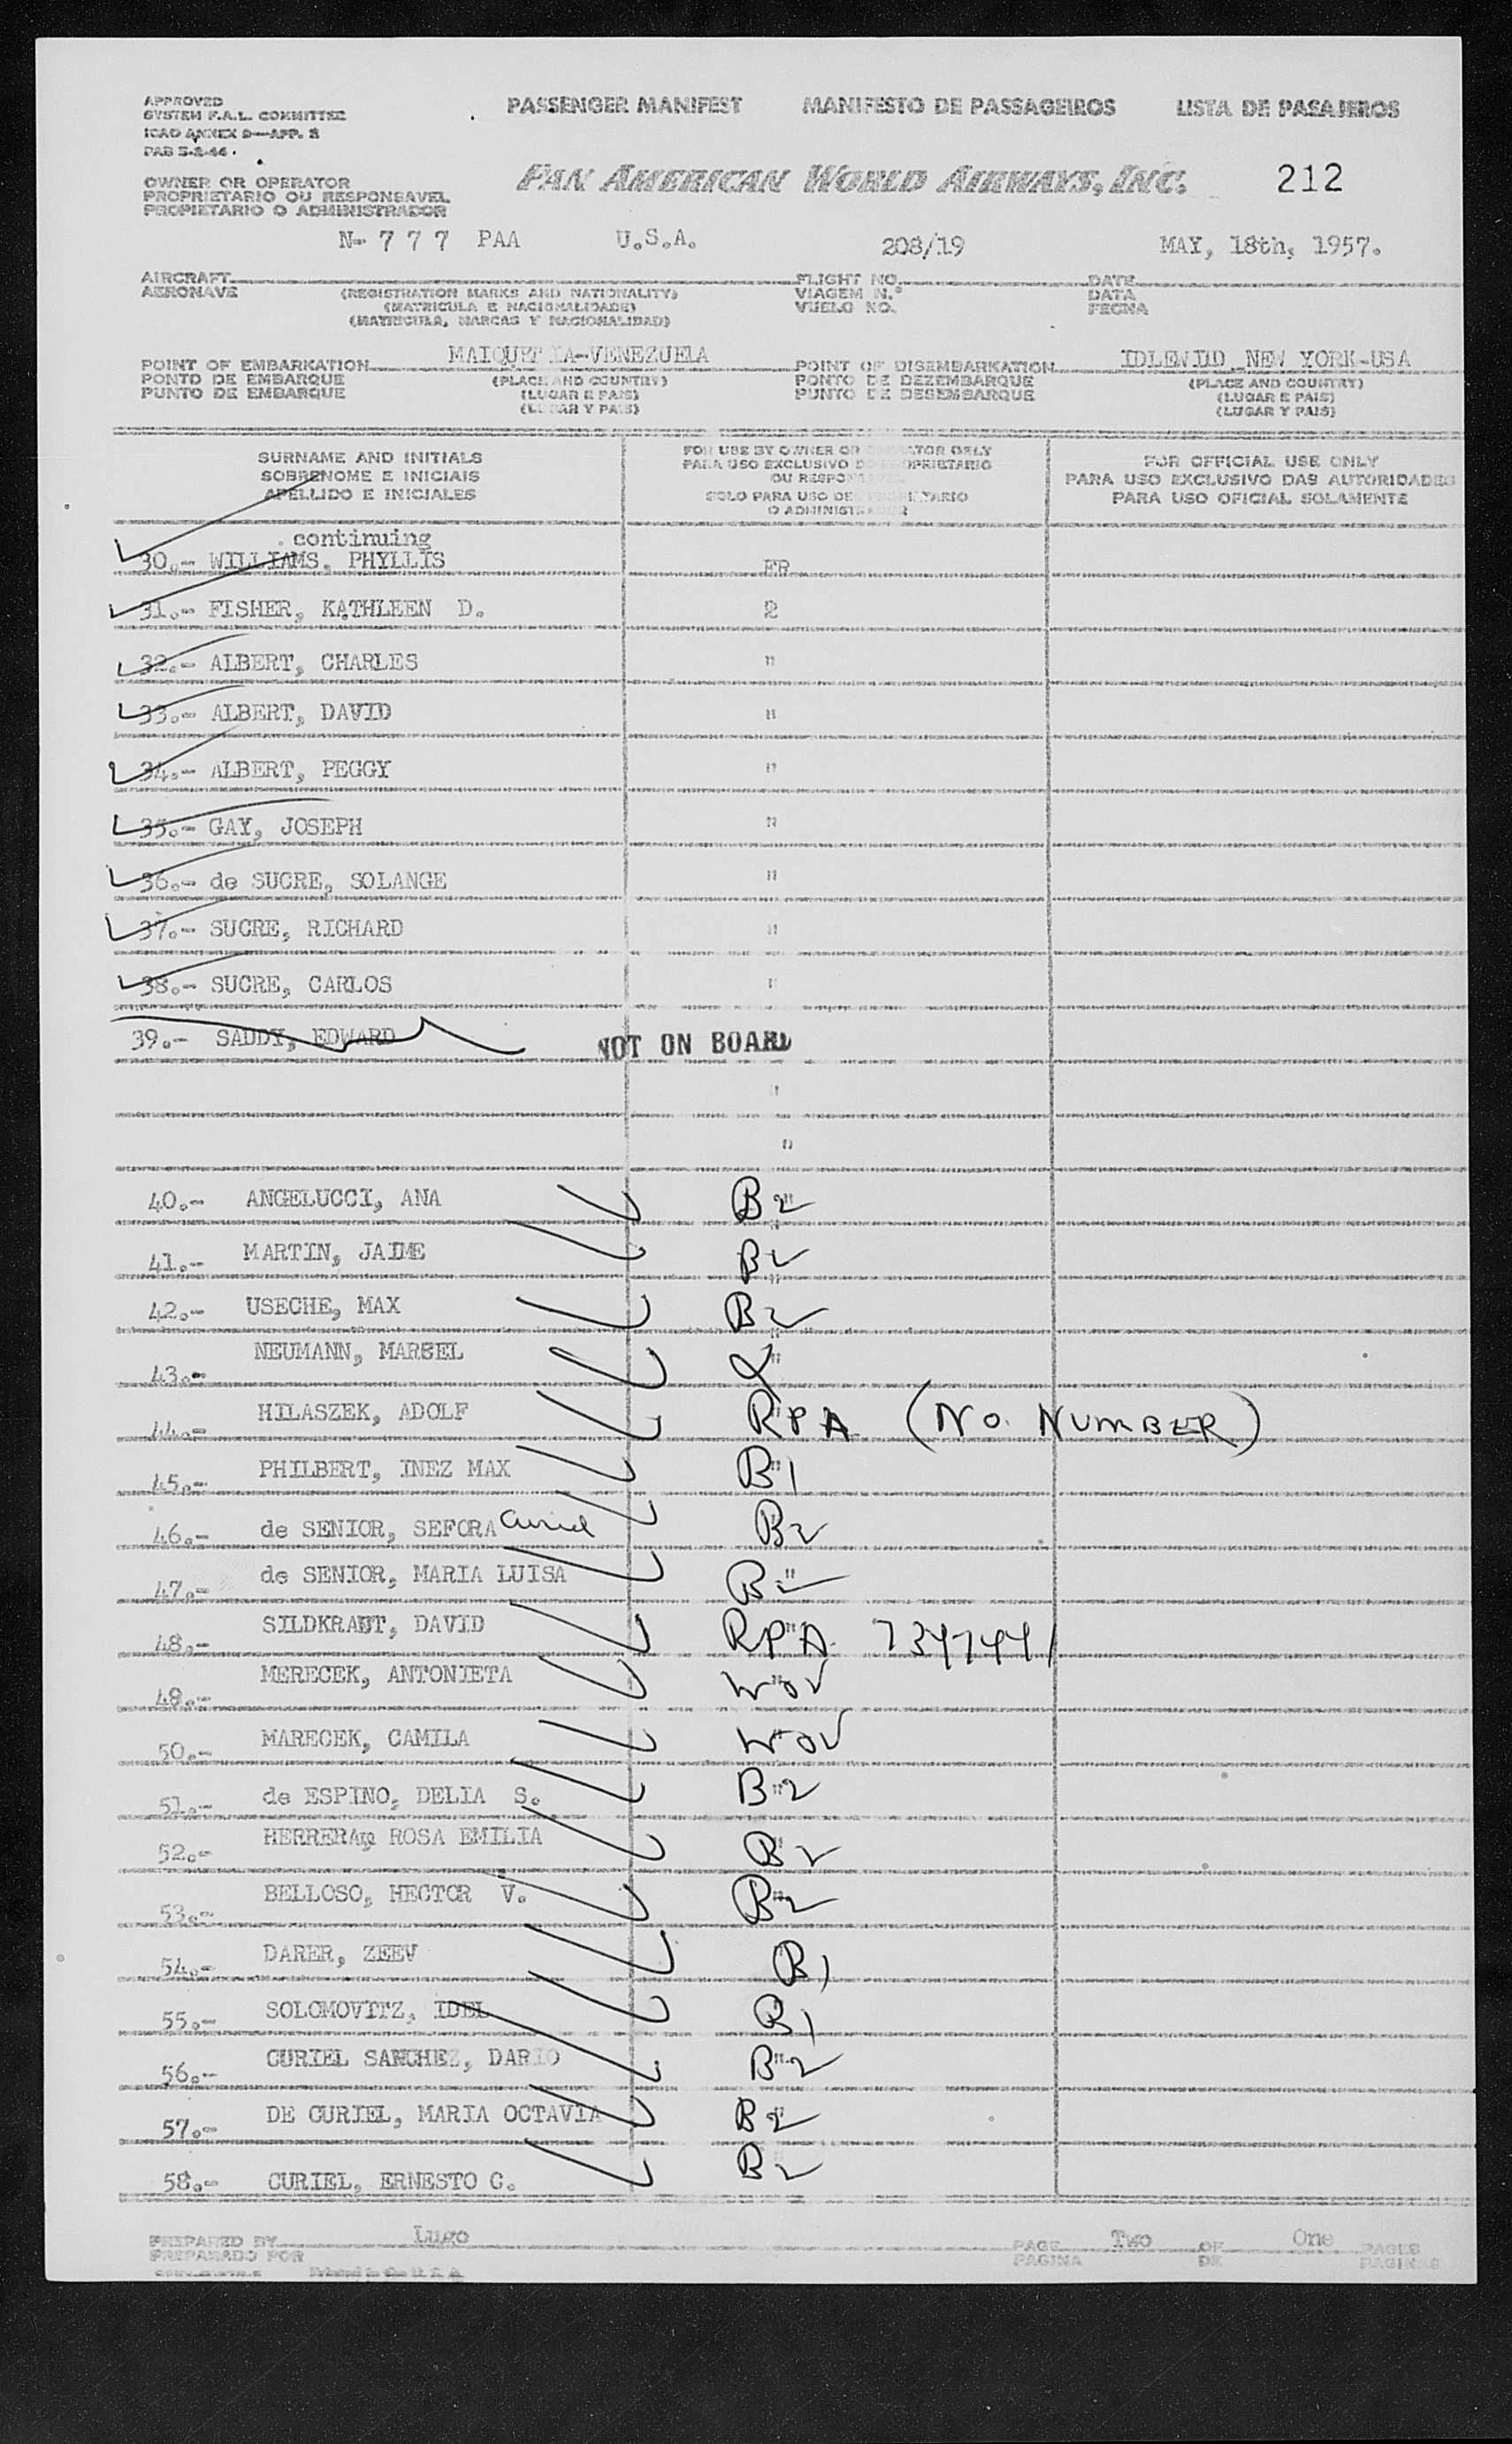 APPROVED
SYSTEM F.A.L. COMMITTEE
ICAO ANNEX 9—APP. 2
PAB 5-2-46
PASSENGER MANIFEST MANIFESTO DE PASSAGEIROS LISTA DE PASAJEROS
OWNER OR OPERATOR
PROPRIETARIO OU RESPONSAVEL
PROPIETARIO O ADMINISTRADOR
PAN AMERICAN WORLD AIRWAYS, INC. 212
N- 7 7 7 PAA U.S.A. 208/19 MAY, 18th, 1957.
AIRCRAFT FLIGHT NO. DATE
AERONAVE (REGISTRATION MARKS AND NATIONALITY) VIAGEM N.º DATA
(MATRICULA E NACIONALIDADE) VUELO NO. FECHA
(MATRICULA, MARCAS Y NACIONALIDAD)
MAIQUETIA-VENEZUELA IDLEWILD NEW YORK-USA
POINT OF EMBARKATION POINT OF DISEMBARKATION
PONTO DE EMBARQUE (PLACE AND COUNTRY) PONTO DE DEZEMBARQUE (PLACE AND COUNTRY)
PUNTO DE EMBARQUE (LUGAR E PAIS) PUNTO DE DESEMBARQUE (LUGAR E PAIS)
(LUGAR Y PAIS) (LUGAR Y PAIS)
SURNAME AND INITIALS
SOBRENOME E INICIAIS
APELLIDO E INICIALES
FOR USE BY OWNER OR OPERATOR ONLY
PARA USO EXCLUSIVO DO PROPRIETARIO
OU RESPONSAVEL
SOLO PARA USO DEL PROPIETARIO
O ADMINISTRADOR
FOR OFFICIAL USE ONLY
PARA USO EXCLUSIVO DAS AUTORIDADES
PARA USO OFICIAL SOLAMENTE
continuing
30.- WILLIAMS, PHYLLIS FR
31.- FISHER, KATHLEEN D. 2
32.- ALBERT, CHARLES "
33.- ALBERT, DAVID "
34.- ALBERT, PEGGY "
35.- GAY, JOSEPH "
36.- de SUCRE, SOLANGE "
37.- SUCRE, RICHARD "
38.- SUCRE, CARLOS "
39.- SADDY, EDWARD NOT ON BOARD
"
"
40.- ANGELUCCI, ANA B2
41.- MARTIN, JAIME B2
42.- USECHE, MAX B2
43.- NEUMANN, MARCEL
44.- HILASZEK, ADOLF RPA (NO. NUMBER)
45.- PHILBERT, INEZ MAX B1
46.- de SENIOR, SEFORA Curiel B2
47.- de SENIOR, MARIA LUISA B2
48.- SILDKRAUT, DAVID RPA
48.- MERECEK, ANTONIETA WOV
50.- MARECEK, CAMILA WOV
51.- de ESPINO, DELIA S. B2
52.- HERRERA, ROSA EMILIA B2
53.- BELLOSO, HECTOR V. B2
54.- DARER, ZEEV B1
55.- SOLOMOVITZ, IDEL B1
56.- CURIEL SANCHEZ, DARIO B2
57.- DE CURIEL, MARIA OCTAVIA B2
58.- CURIEL, ERNESTO C. B2
PREPARED BY Lugo PAGE Two OF One PAGES
PREPARADO POR PAGINA DE PAGINAS
Printed in the U. S. A.